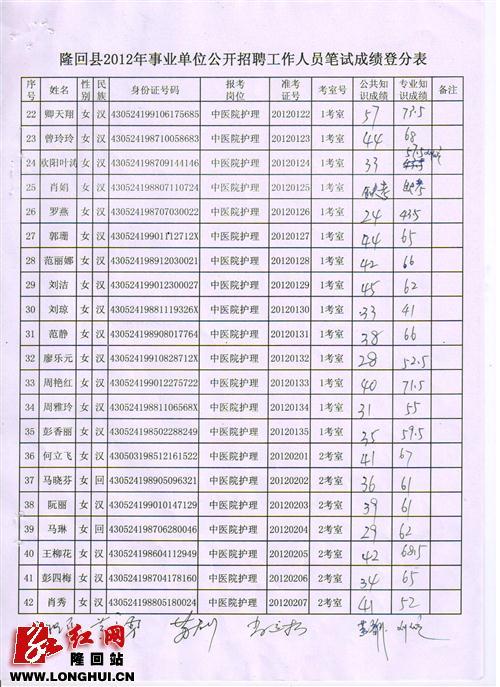 隆回县2012年事业单位公开招聘工作人员笔试成绩登分表
序号 姓名 性别 民族 身份证号码 报考岗位 准考证号 考室号 公共知识成绩 专业知识成绩 备注
22 卿天翔 女 汉 430524199106175685 中医院护理 20120122 1考室 57 73.5
23 曾玲玲 女 汉 430524198710058683 中医院护理 20120123 1考室 44 68
24 欧阳叶涛 女 汉 430524198709144146 中医院护理 20120124 1考室 33 53.5
25 肖娟 女 汉 430524198807110724 中医院护理 20120125 1考室 缺考 缺考
26 罗燕 女 汉 430524198707030022 中医院护理 20120126 1考室 24 43.5
27 郭珊 女 汉 43052419901112712X 中医院护理 20120127 1考室 44 65
28 范丽娜 女 汉 430524198912030021 中医院护理 20120128 1考室 42 66
29 刘洁 女 汉 430524199012300027 中医院护理 20120129 1考室 45 62
30 刘琼 女 汉 43052419881119326X 中医院护理 20120130 1考室 33 41
31 范静 女 汉 430524198908017764 中医院护理 20120131 1考室 38 66
32 廖乐元 女 汉 43052419910828712X 中医院护理 20120132 1考室 28 52.5
33 周艳红 女 汉 430524199012275722 中医院护理 20120133 1考室 40 71.5
34 周雅玲 女 汉 43052419881106568X 中医院护理 20120134 1考室 31 55
35 彭香丽 女 汉 430524198502288249 中医院护理 20120135 1考室 35 59.5
36 何立飞 女 汉 430503198512161522 中医院护理 20120201 2考室 41 67
37 马晓芬 女 回 430524198905096321 中医院护理 20120202 2考室 36 61
38 阮丽 女 汉 430524199010147129 中医院护理 20120203 2考室 39 61
39 马琳 女 回 430524198706280046 中医院护理 20120204 2考室 29 62
40 王柳花 女 汉 430524198604112949 中医院护理 20120205 2考室 42 68.5
41 彭四梅 女 汉 430524198704178160 中医院护理 20120206 2考室 34 65
42 肖秀 女 汉 430524198805180024 中医院护理 20120207 2考室 41 52
红网
隆回站
WWW.LONGHUI.CN